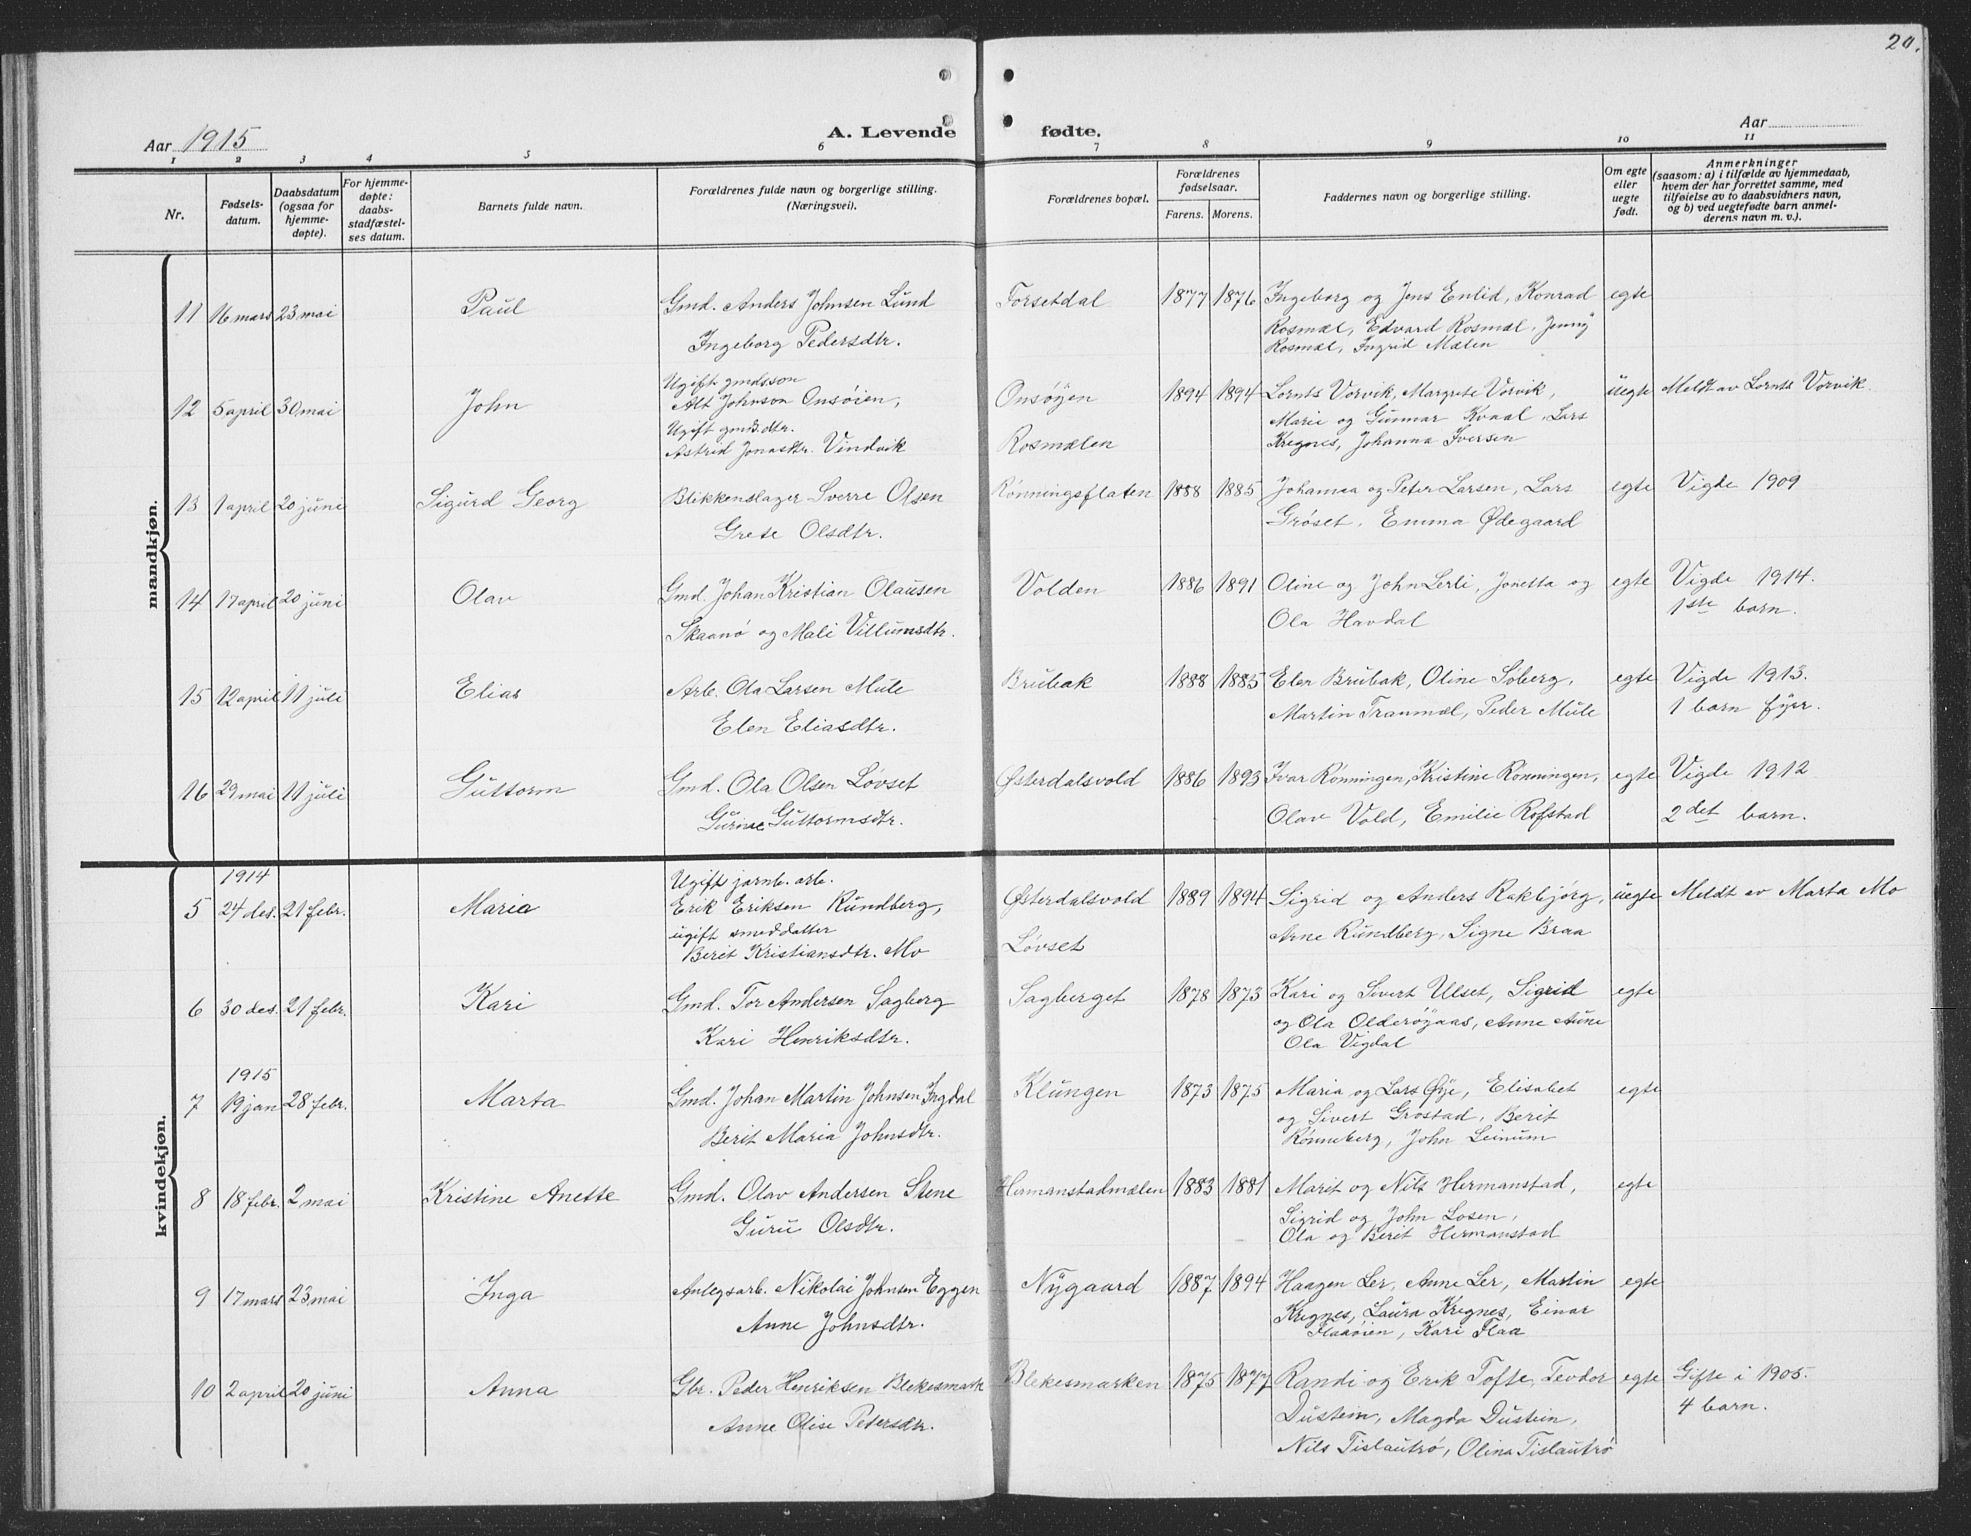 20.
Aar 1915
A. Levende fødte.
Aar
1 2 3 4 5 6 7 8 9 10 11
Nr.
Fødsels-
datum.
Daabsdatum
(ogsaa for
hjemme-
døpte).
For hjemme-
døpte:
daabs-
stadfæstel-
ses datum.
Barnets fulde navn.
Forældrenes fulde navn og borgerlige stilling.
(Næringsvei).
Forældrenes bopæl.
Forældrenes
fødselsaar.
Farens. Morens.
Faddernes navn og borgerlige stilling.
Om egte
eller
uegte
født.
Anmerkninger
(saasom: a) i tilfælde av hjemmedaab,
hvem der har forrettet samme, med
tilføielse av to daabsvidners navn,
og b) ved uegtefødte barn anmel-
derens navn m. v.).
mandkjøn.
11 16 mars 23 mai Paul Gmd. Anders Johnsen Lund Forsetdal 1877 1876 Ingeborg og Jens Enlid, Konrad egte
Ingeborg Pedersdtr. Rosmæl, Edvard Rosmæl, Jenny
Rosmæl, Ingrid Mælen
Ugift gmdsson
12 5 april 30 mai John Alf Johnson Onsøien, Onsøyen 1894 1894 Lornts Vorvik, Margrete Vorvik, uegte Meldt av Lornts Vorvik
Ugift gmds.dtr. Marie og Gunnar Kvaal, Lars
Astrid Jonasdtr. Vindvik Rosmælen Kregnes, Johanna Iversen
13 1 april 20 juni Sigurd Georg Blikkenslager Sverre Olsen Rønningsflaten 1888 1885 Johanna og Peter Larsen, Lars egte Vigde 1909
Grete Olsdtr. Grøset, Emma Ødegaard
14 17 april 20 juni Olav Gmd. Johan Kristian Olausen Volden 1886 1891 Oline og John Lerli, Jonetta og egte Vigde 1914.
Skaanø og Mali Villumsdtr. Ola Havdal 1ste barn.
15 12 april 11 juli Elias Arb. Ola Larsen Mule Brubak 1888 1885 Elen Brubak, Oline Søberg, egte Vigde 1913.
Elen Eliasdtr. Martin Tranmæl, Peder Mule 1 barn fyrr.
16 29 mai 11 juli Guttorm Gmd. Ola Olsen Løvset Østerdalsvold 1886 1893 Ivar Rønningen, Kristine Rønningen, egte Vigde 1912
Gurine Guttormsdtr. Olav Vold, Emilie Rofstad 2det barn.
kvindekjøn.
1914 Ugift jarnb. arb.
5 24 des. 21 febr. Maria Erik Eriksen Rundberg, Østerdalsvold 1889 1894 Sigrid og Anders Rakbjørg, uegte Meldt av Marta Mo
ugift smeddatter
Berit Kristiansdtr. Mo Løvset Arne Rundberg, Signe Braa
6 30 des. 21 febr. Kari Gmd. Tor Andersen Sagberg Sagberget 1878 1873 Kari og Sivert Ulset, Sigrid egte
Kari Henriksdtr. og Ola Olderøyaas, Anne Aune
Ola Vigdal
1915
7 19 jan 28 febr. Marta Gmd. Johan Martin Johnsen Ingdal Klungen 1873 1875 Maria og Lars Øye, Elisabet egte
Berit Maria Johnsdtr. og Sivert Grøstad, Berit
Rønneberg, John Leinum
8 18 febr. 2 mai Kristine Anette Gmd. Olav Andersen Stene Hermanstadmælen 1883 1881 Marit og Nils Hermanstad, egte
Guru Olsdtr. Sigrid og John Losen,
Ola og Berit Hermanstad
9 17 mars 23 mai Inga Anlegsarb. Nikolai Johnsen Eggen Nygaard 1887 1894 Haagen Ler, Anne Ler, Martin egte
Anne Johnsdtr. Kregnes, Laura Kregnes, Einar
Flaaøien, Kari Flaa
10 2 april 20 juni Anna Gbr. Peder Henriksen Blekesmark Blekesmarken 1875 1877 Randi og Erik Tofte, Teodor egte Gifte i 1905.
Anne Olise Petersdtr. Dustein, Magda Dustein, 4 barn.
Nils Tislautrø, Olina Tislautrø